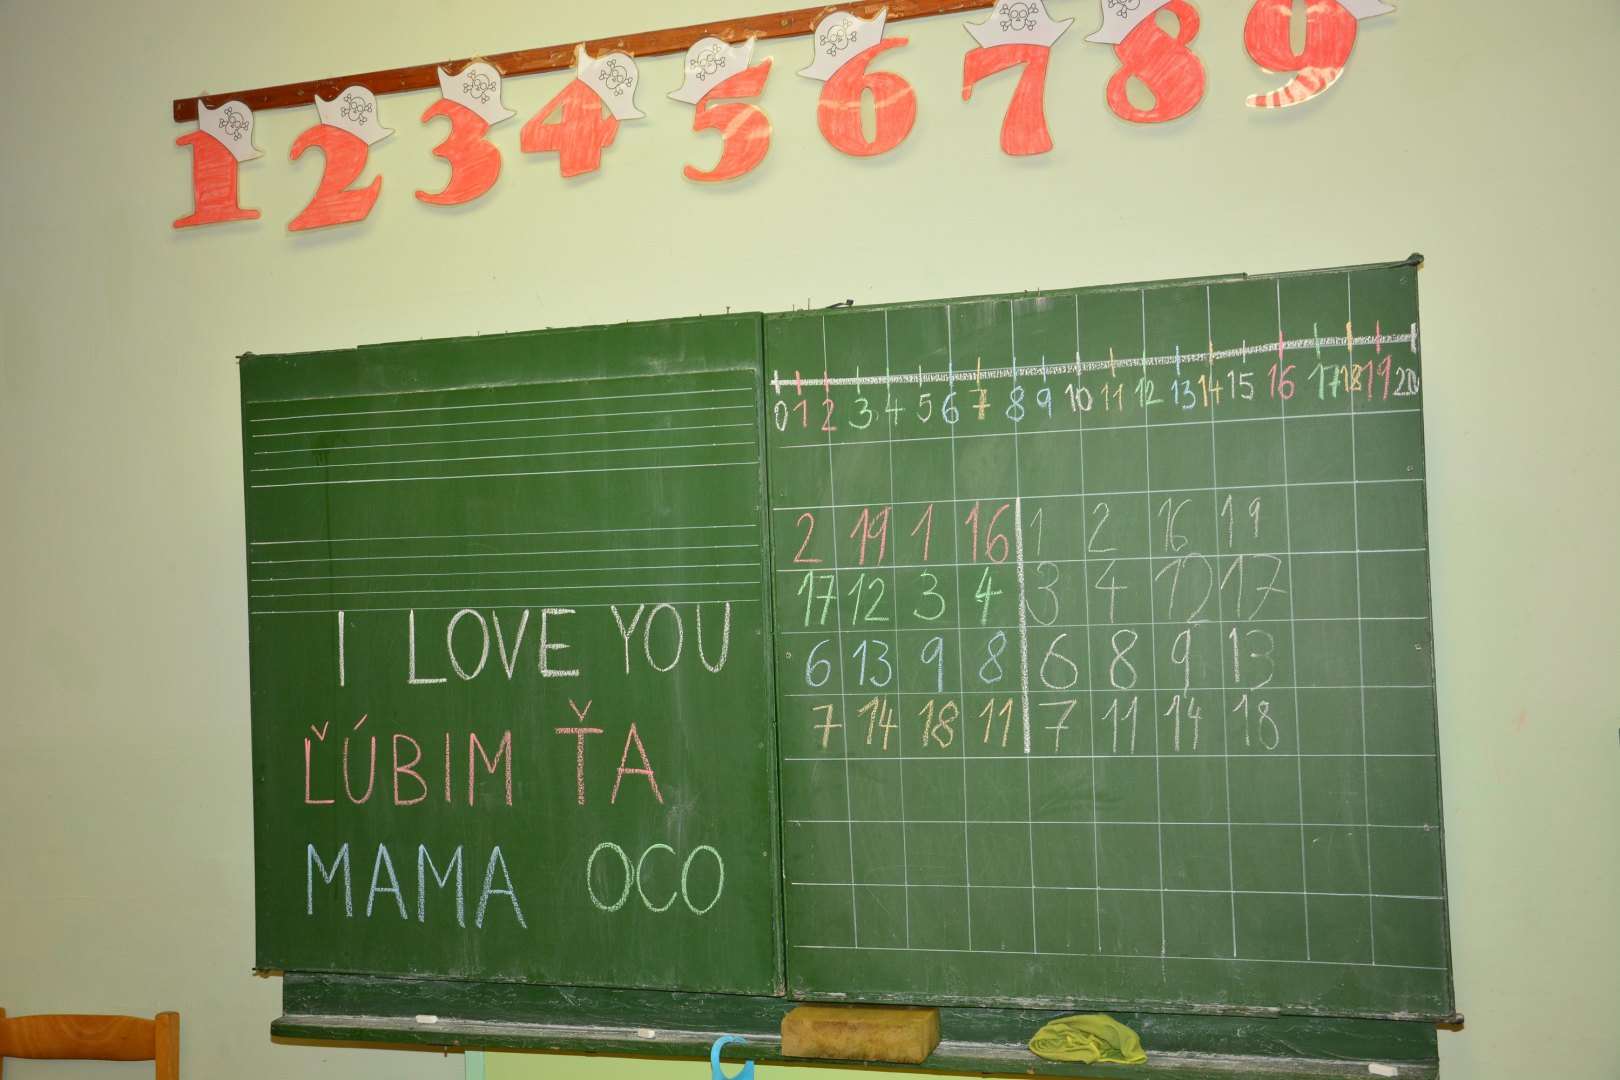 1 2 3 4 5 6 7 8 9
0 1 2 3 4 5 6 7 8 9 10 11 12 13 14 15 16 17 18 19 20
2 19 1 16 1 2 16 19
17 12 3 4 3 4 12 17
6 13 9 8 6 8 9 13
7 14 18 11 7 11 14 18
I LOVE YOU
ĽÚBIM ŤA
MAMA OCO